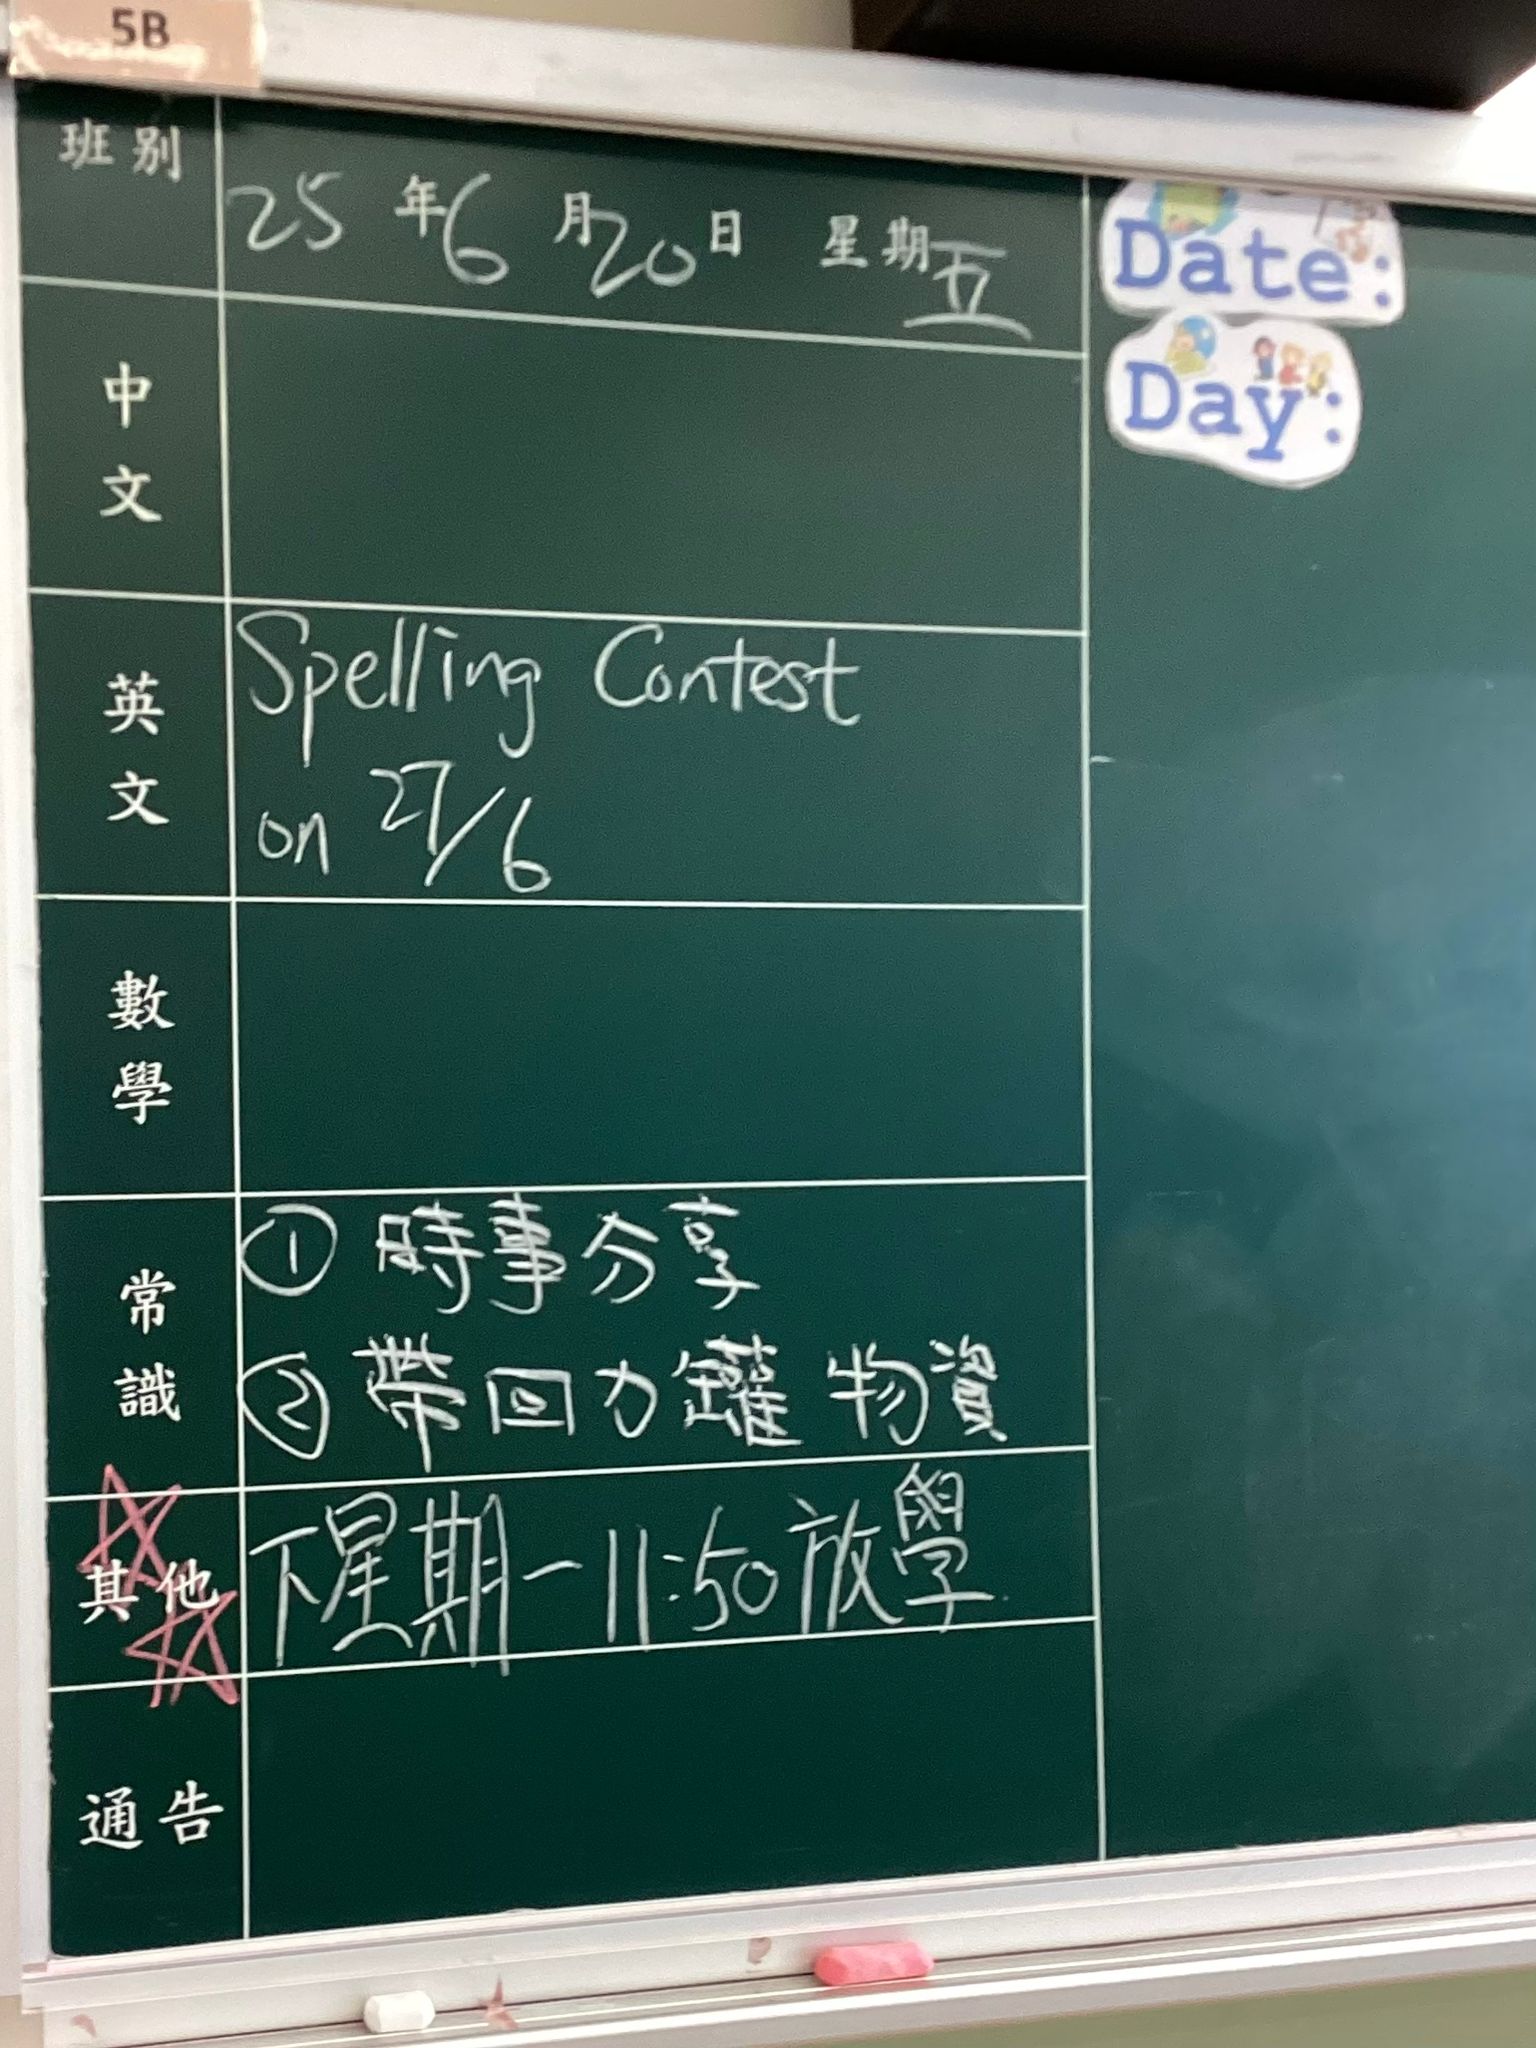 5B
班別
25年6月20日 星期五
Date:
Day:
中文
英文
Spelling Contest
on 27/6
數學
常識
① 時事分享
② 帶回力罐物資
其他
下星期一11:50放學
通告